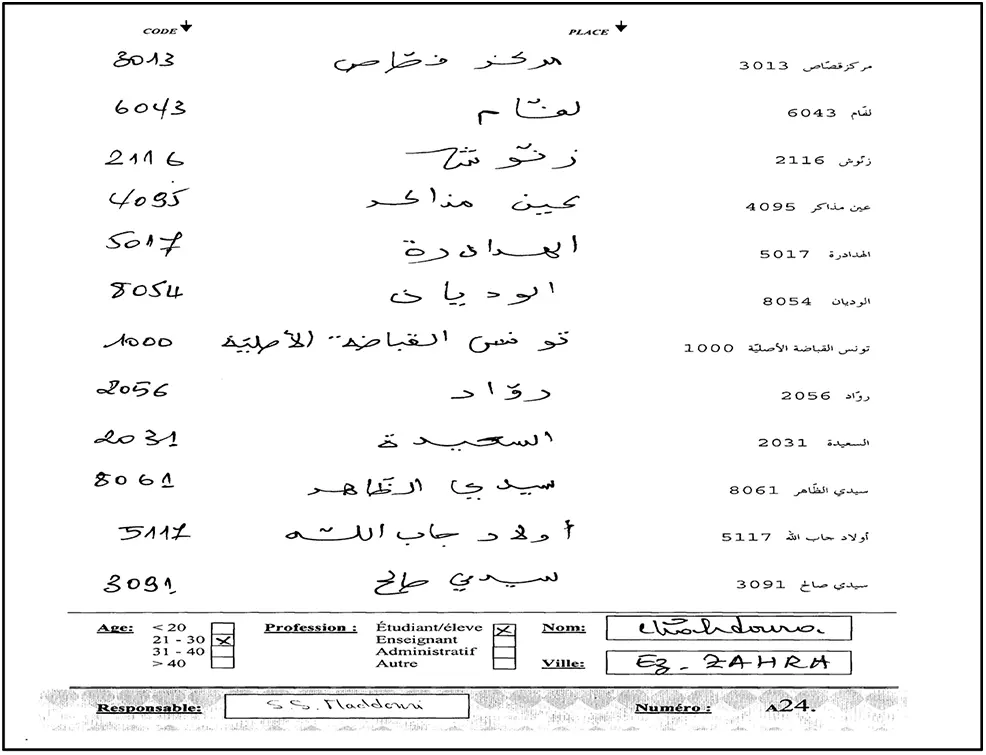 CODE PLACE
3013 مركز قصّاص مركز قصّاص 3013
6043 لقّام لقّام 6043
2116 زنّوش زنّوش 2116
4095 عين مذاكر عين مذاكر 4095
5017 الهدادرة الهدادرة 5017
8054 الوديان الوديان 8054
1000 تونس القباضة الأصليّة تونس القباضة الأصليّة 1000
2056 روّاد روّاد 2056
2031 السعيدة السعيدة 2031
8061 سيدي الظّاهر سيدي الظّاهر 8061
5117 أولاد جاب اللّه أولاد جاب الله 5117
3091 سيدي صالح سيدي صالح 3091
Age: < 20 Profession : Étudiant/éleve Nom:
21 - 30 X Enseignant X
31 - 40 Administratif Ville: Ez-ZAHRA
> 40 Autre
Responsable: S S. Maddouri Numéro : A24.